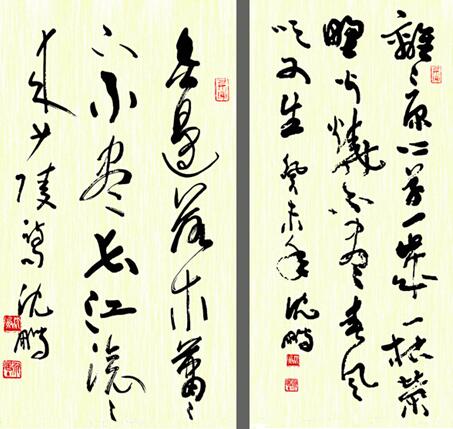 離〻原上草一歲一枯榮
野火燒不盡春風
吹又生 癸未年 沈鵬
無邊落木蕭〻
下不盡長江滾〻
來 少陵詩 沈鵬